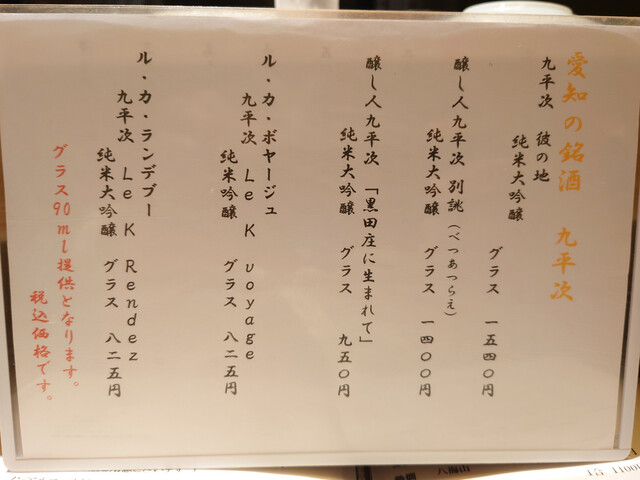 愛知の銘酒 九平次
九平次 彼の地
純米大吟醸
グラス 一五四〇円
醸し人九平次 別誂（べつあつらえ）
純米大吟醸 グラス 一四〇〇円
醸し人九平次 「黒田庄に生まれて」
純米大吟醸 グラス 九五〇円
ル・カ・ボヤージュ
九平次 Le K voyage
純米吟醸 グラス 八二五円
ル・カ・ランデブー
九平次 Le K Rendez
純米大吟醸 グラス 八二五円
グラス90ml提供となります。
税込価格です。
八海山